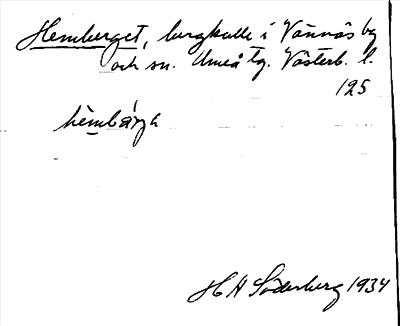 Hemberget, bergkulle i Vännäs by
och sn. Umeå tg. Västerb. l.
125
hèmbárʒa
H H Söderberg 1934